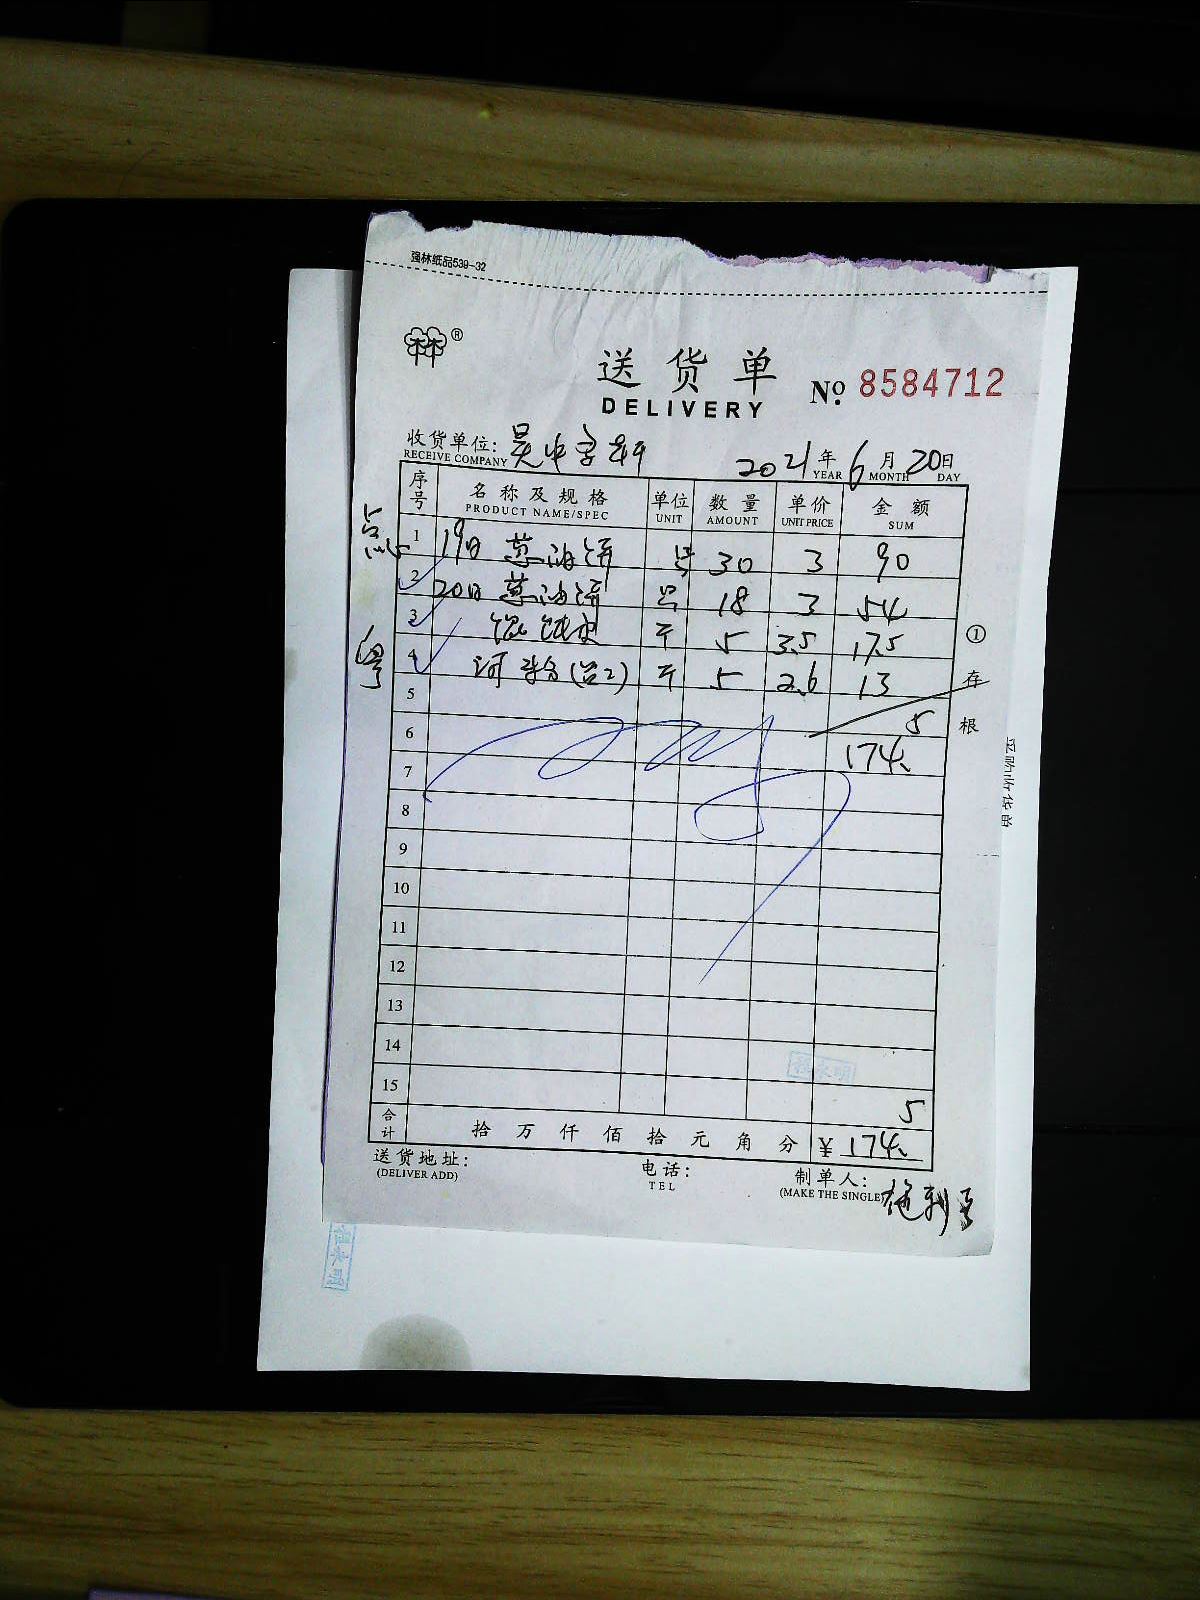 强林纸品539-32
®
送货单 № 8584712
DELIVERY
收货单位: 吴中
RECEIVE COMPANY
2021年6月20日
YEAR MONTH DAY
序号 名称及规格 单位 数量 单价 金额
PRODUCT NAME/SPEC UNIT AMOUNT UNIT PRICE SUM
点
1 19日 葱油饼 30 3 90
2 20日 葱油饼 18 3 54
3 馄饨皮 斤 5 3.5 17.5
4 河粉 斤 5 2.6 13
5
6 174.5
7
8
9
10
11
12
13
14
15
合计 拾万仟佰拾元角分 ¥ 174.5
送货地址: 电话: 制单人:
(DELIVER ADD) TEL (MAKE THE SINGLE)
①存根
采购收货单